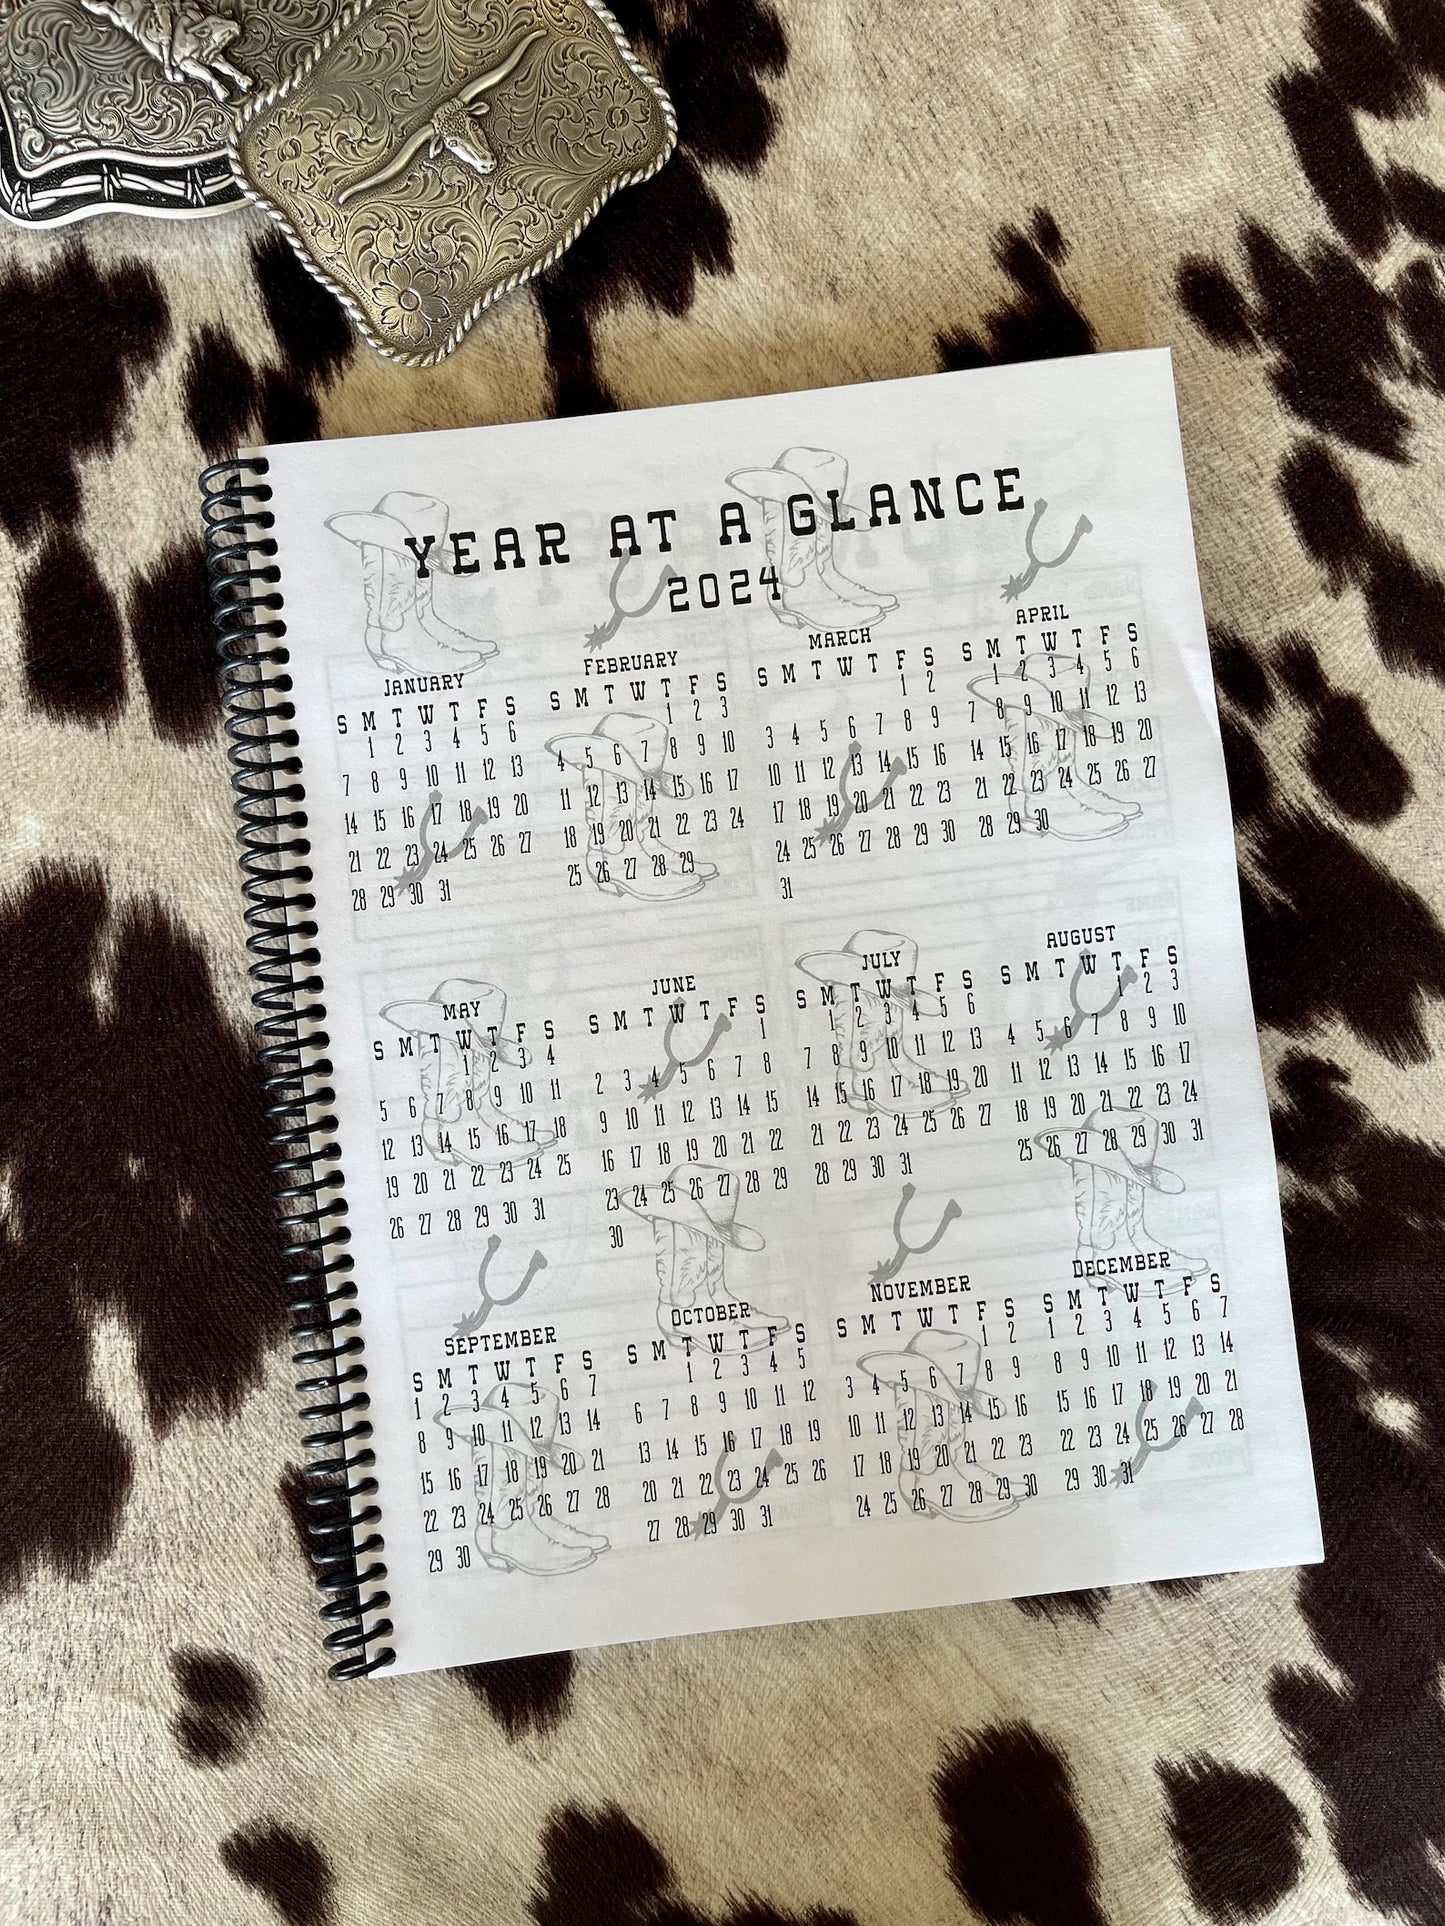 YEAR AT A GLANCE
2024
JANUARY
S M T W T F S
1 2 3 4 5 6
7 8 9 10 11 12 13
14 15 16 17 18 19 20
21 22 23 24 25 26 27
28 29 30 31
FEBRUARY
S M T W T F S
1 2 3
4 5 6 7 8 9 10
11 12 13 14 15 16 17
18 19 20 21 22 23 24
25 26 27 28 29
MARCH
S M T W T F S
1 2
3 4 5 6 7 8 9
10 11 12 13 14 15 16
17 18 19 20 21 22 23
24 25 26 27 28 29 30
31
APRIL
S M T W T F S
1 2 3 4 5 6
7 8 9 10 11 12 13
14 15 16 17 18 19 20
21 22 23 24 25 26 27
28 29 30
MAY
S M T W T F S
1 2 3 4
5 6 7 8 9 10 11
12 13 14 15 16 17 18
19 20 21 22 23 24 25
26 27 28 29 30 31
JUNE
S M T W T F S
1
2 3 4 5 6 7 8
9 10 11 12 13 14 15
16 17 18 19 20 21 22
23 24 25 26 27 28 29
30
JULY
S M T W T F S
1 2 3 4 5 6
7 8 9 10 11 12 13
14 15 16 17 18 19 20
21 22 23 24 25 26 27
28 29 30 31
AUGUST
S M T W T F S
1 2 3
4 5 6 7 8 9 10
11 12 13 14 15 16 17
18 19 20 21 22 23 24
25 26 27 28 29 30 31
SEPTEMBER
S M T W T F S
1 2 3 4 5 6 7
8 9 10 11 12 13 14
15 16 17 18 19 20 21
22 23 24 25 26 27 28
29 30
OCTOBER
S M T W T F S
1 2 3 4 5
6 7 8 9 10 11 12
13 14 15 16 17 18 19
20 21 22 23 24 25 26
27 28 29 30 31
NOVEMBER
S M T W T F S
1 2
3 4 5 6 7 8 9
10 11 12 13 14 15 16
17 18 19 20 21 22 23
24 25 26 27 28 29 30
DECEMBER
S M T W T F S
1 2 3 4 5 6 7
8 9 10 11 12 13 14
15 16 17 18 19 20 21
22 23 24 25 26 27 28
29 30 31